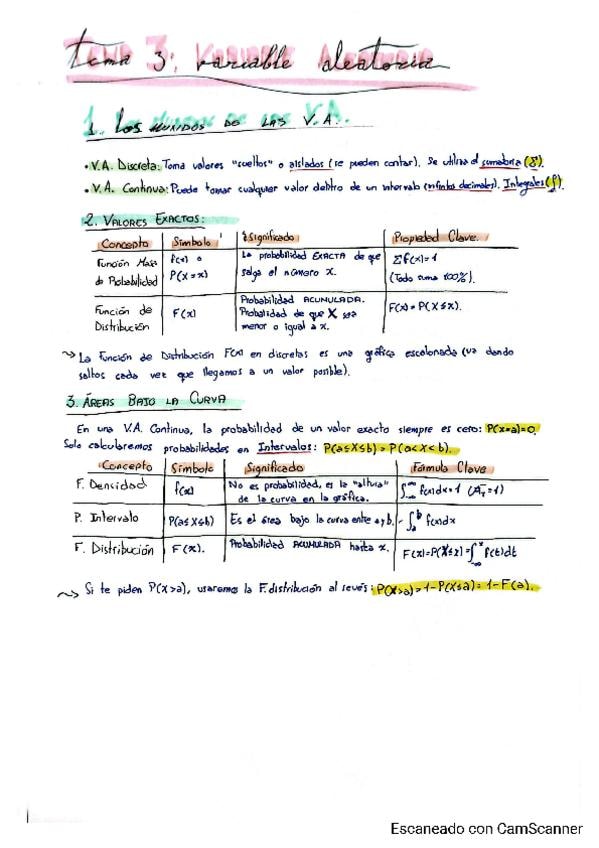 Tema 3: Variable Aleatoria
1. Los mundos de las V.A.
• V.A. Discreta: Toma valores "sueltos" o aislados (se pueden contar). Se utiliza el sumatorio (Σ).
• V.A. Continua: Puede tomar cualquier valor dentro de un intervalo (infinitos decimales). Integrales (∫).
2. VALORES EXACTOS:
Concepto | Símbolo | Significado | Propiedad Clave.
Función Masa de Probabilidad | f(x) o P(X=x) | La probabilidad EXACTA de que salga el número x. | Σf(x)=1 (Todo suma 100%).
Función de Distribución | F(x) | Probabilidad ACUMULADA. Probabilidad de que X sea menor o igual a x. | F(x)=P(X≤x).
La Función de Distribución F(x) en discretas es una gráfica escalonada (va dando
saltos cada vez que llegamos a un valor posible).
3. ÁREAS BAJO LA CURVA
En una V.A. Continua, la probabilidad de un valor exacto siempre es cero: P(X=a)=0.
Solo calcularemos probabilidades en Intervalos: P(a≤X≤b)=P(a<X<b).
Concepto | Símbolo | Significado | Fórmula Clave
F. Densidad | f(x) | No es probabilidad, es la "altura" de la curva en la gráfica. | ∫_{-∞}^{∞} f(x)dx=1 (A_T=1)
P. Intervalo | P(a≤X≤b) | Es el área bajo la curva entre a y b. | ∫_a^b f(x)dx
F. Distribución | F(x). | Probabilidad ACUMULADA hasta x. | F(x)=P(X≤x)=∫_{-∞}^x f(t)dt
Si te piden P(X>a), usaremos la F.distribución al revés: P(X>a)=1-P(X≤a)=1-F(a).
Escaneado con CamScanner